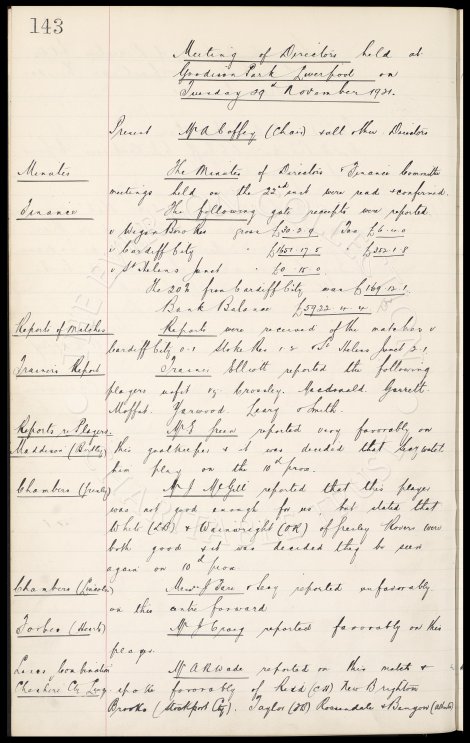 143
Meeting of Directors held at
Goodison Park Liverpool on
Tuesday 29th November 1921.
Present Mr A Coffey (Chair) & all other Directors
Minutes The Minutes of Directors & Finance Committee
meetings held on the 22nd inst were read & confirmed.
Finance The following gate receipts were reported.
v Wigan Boro Res gross £30.2.9 Tax £6.4.0
v Cardiff City " £1651.17.5 " £352.1.8
v St Helens Junct " £0.15.0.
The 20% from Cardiff City was £169.12.1.
Bank Balance £5922.4.4
Reports of Matches Reports were received of the matches v
Cardiff City 0-1 Stoke Res 1-2 & St Helens Junct 2-1
Trainers Report Trainer Elliott reported the following
players unfit vz. Crossley. Macdonald. Garrett.
Moffat. Yarwood. Leary & Smith.
Reports re Players. Mr E Green reported very favorably on
Maddison (Birtley) this goalkeeper & it was decided that watch
him play on the 10th prox.
Chambers (Gresley) Mr J McGill reported that this player
was not good enough for us, but stated that
White (LB) & Wainwright (OR) of Gresley Rovers were
both good & it was decided they be seen
again on 10th prox
Chambers (Lincoln) Messrs J & reported unfavorably
on this centre forward
Forbes (Hearts) Mr J Craig reported favorably on this
player.
Lancs Combination Mr A R Wade reported on this match &
Cheshire Cty Leag. spoke favorably of Reid (CH) New Brighton
Brooks (Stockport Cty). Taylor Rossendale &